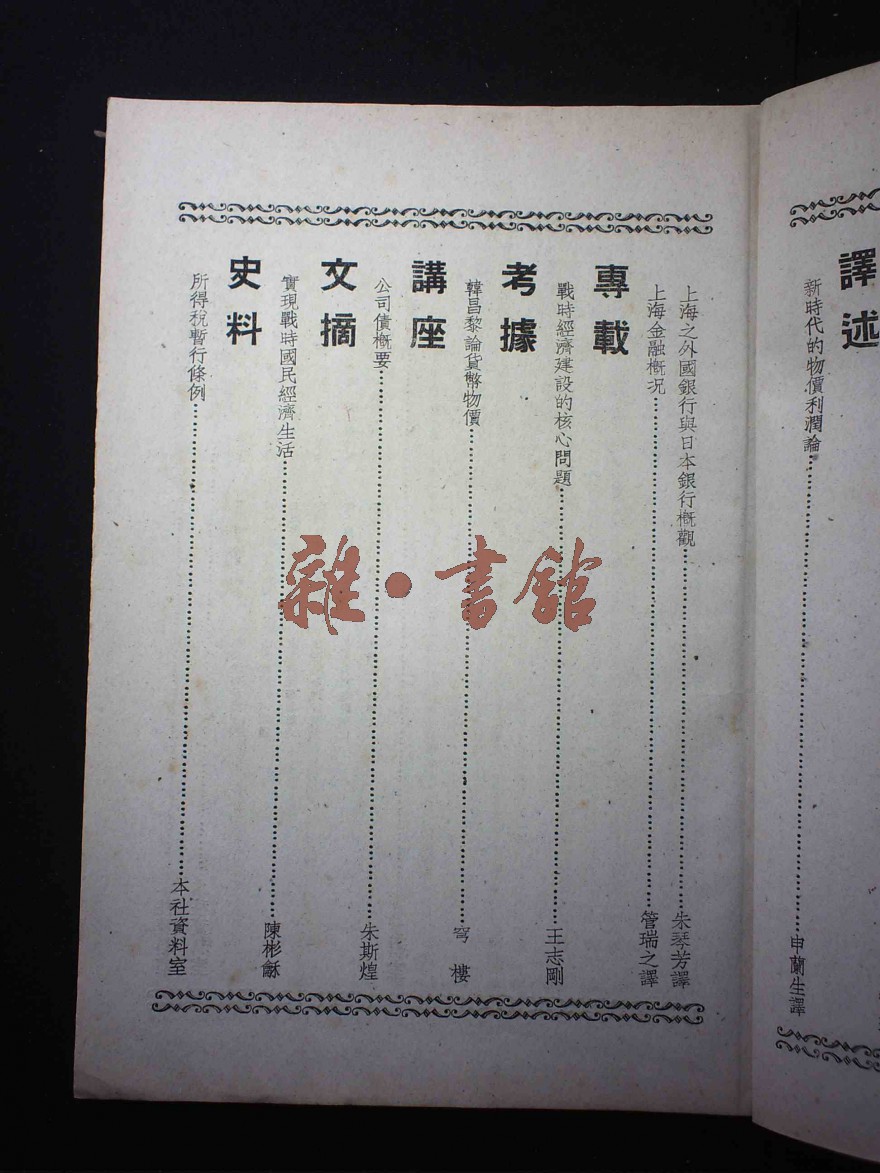 譯述
新時代的物價利潤論⋯⋯⋯⋯申蘭生譯
上海之外國銀行與日本銀行概觀⋯⋯⋯⋯朱琴芳譯
上海金融概況⋯⋯⋯⋯管瑞之譯
專載
戰時經濟建設的核心問題⋯⋯⋯⋯王志剛
考據
韓昌黎論貨幣物價⋯⋯⋯⋯穹樓
講座
公司債概要⋯⋯⋯⋯朱斯煌
文摘
實現戰時國民經濟生活⋯⋯⋯⋯陳彬龢
史料
所得稅暫行條例⋯⋯⋯⋯本社資料室
雜·書館